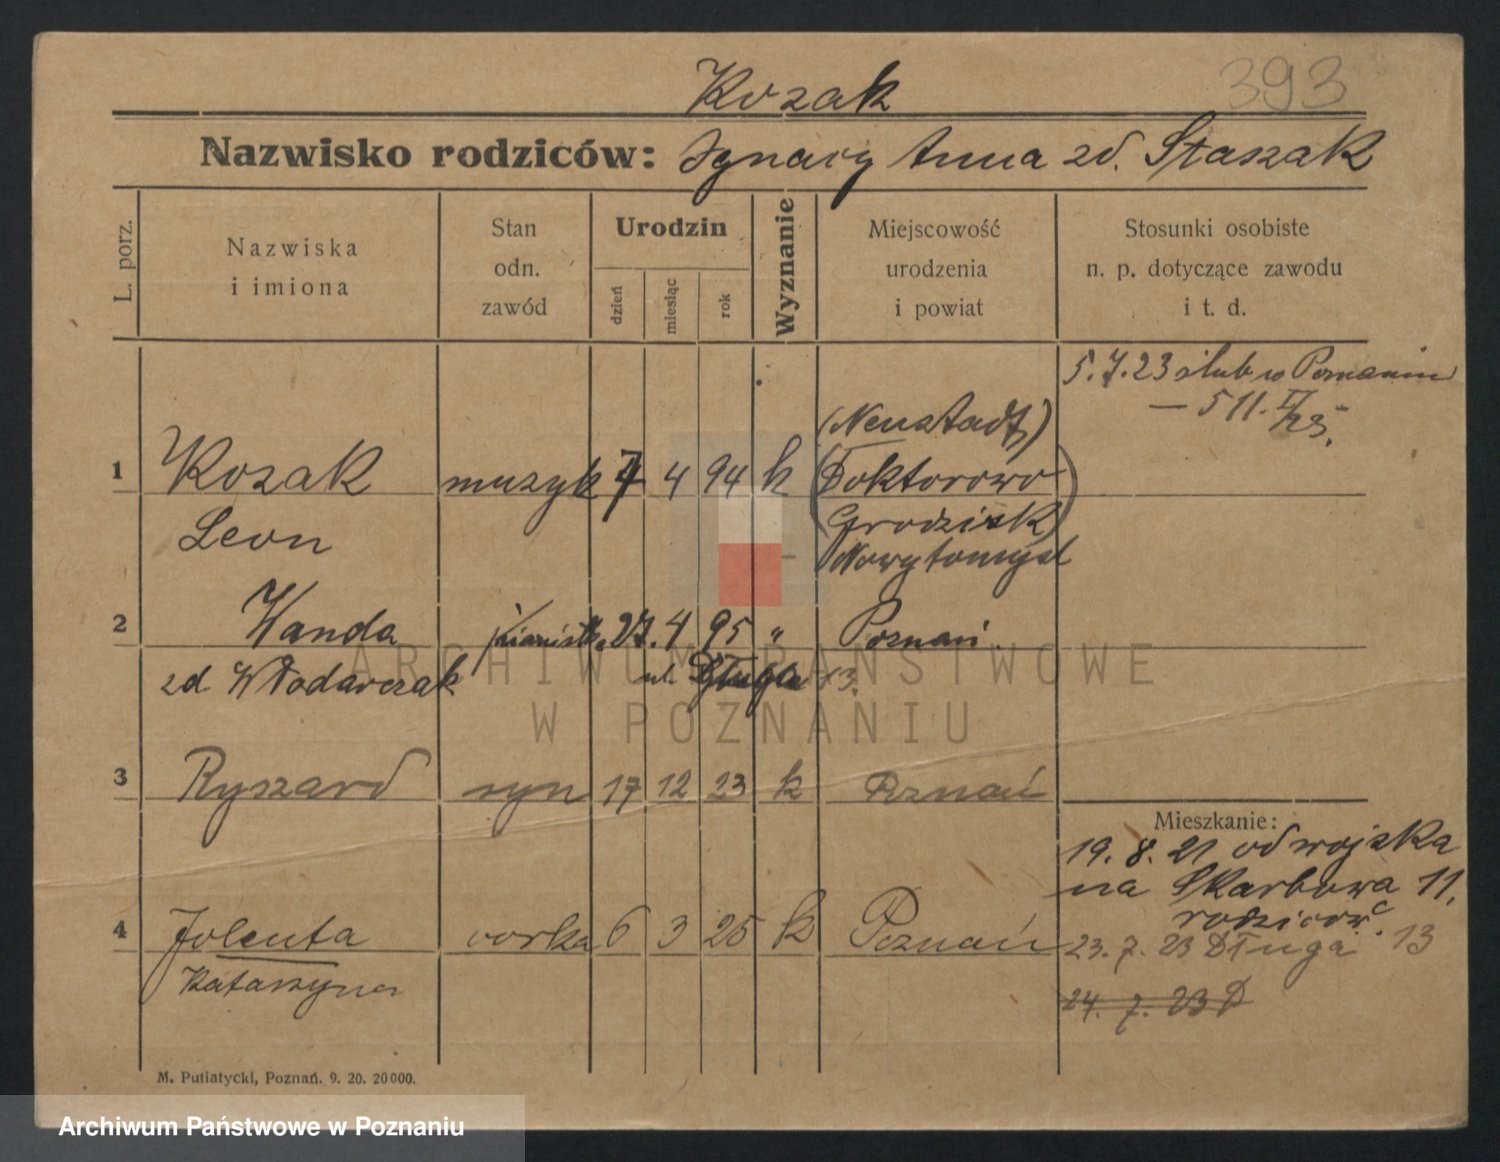 Kozak
393
Nazwisko rodziców: Ignacy Anna zd. Staszak
L. porz.
Nazwiska
i imiona
Stan
odn.
zawód
Urodzin
dzień
miesiąc
rok
Wyznanie
Miejscowość
urodzenia
i powiat
Stosunki osobiste
n. p. dotyczące zawodu
i t. d.
5. 7. 23 ślub w Poznaniu
— 511. II/23.
(Neustadt)
1 Kozak muzyk 7 4 94 k (Doktorowo)
Leon (Grodzisk)
Nowytomysl
2 Wanda pianistka 27. 4 95 " Poznań.
zd. Włodarczak ul. Długa 13.
3 Ryszard syn 17 12 23 k Poznań
Mieszkanie:
19. 8. 21 od wojska
na Skarbowa 11.
rodziców.
4 Jolenta corka 6 3 25 k Poznań
Katarzyna
23. 7. 23 Długa 13
24. 7. 23 D
M. Putiatycki, Poznań. 9. 20. 20000.
ARCHIWUM PAŃSTWOWE
W POZNANIU
Archiwum Państwowe w Poznaniu